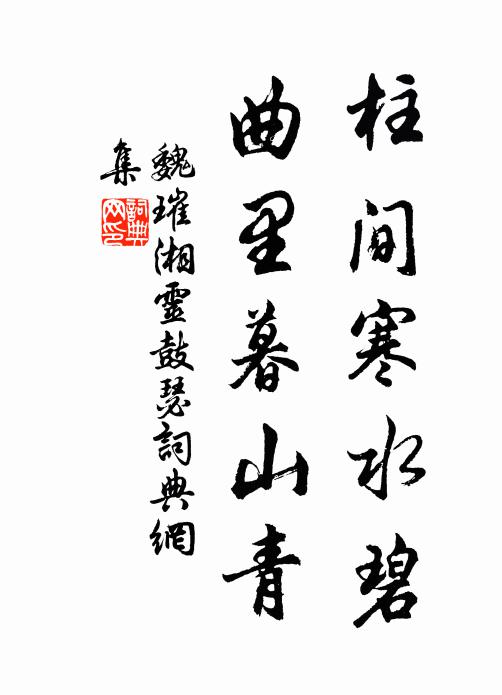 柱間寒水碧
曲里暮山青
魏璀湘靈鼓瑟詞典網
集
詞典
网印